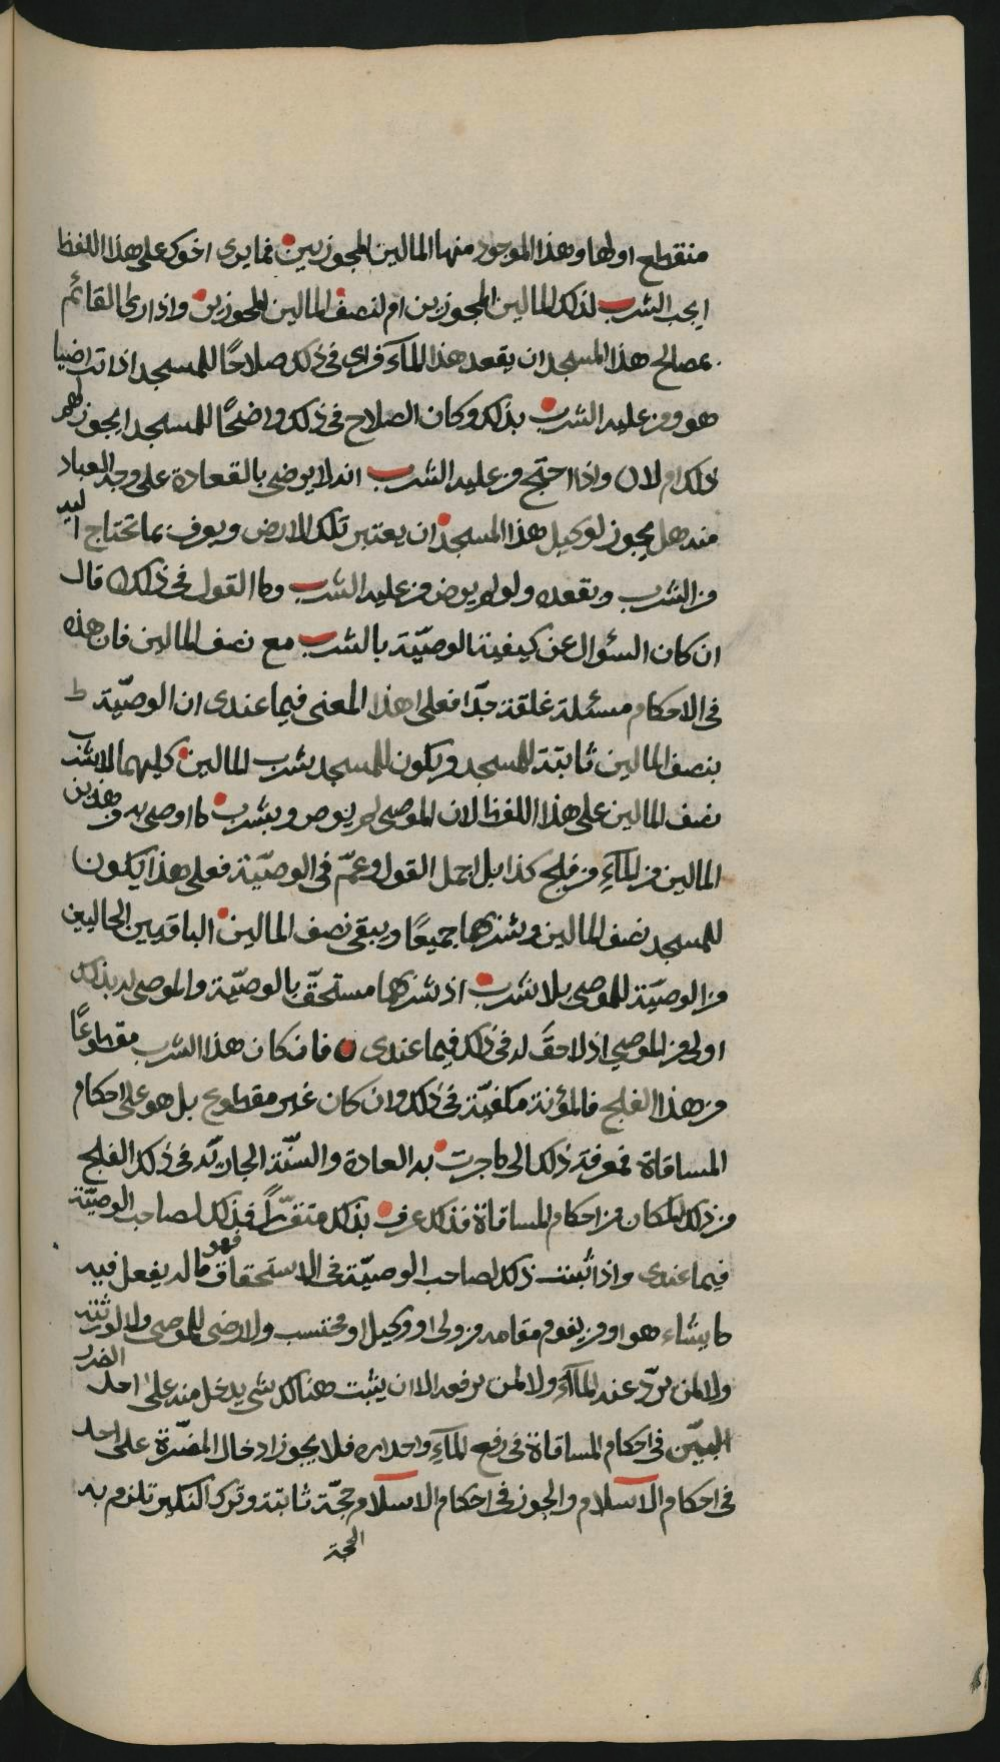 منقطع اولها وهذا الموجود منها المالين المجوزين فما يرى اخوك على هذا اللفظ
ايجب الشرب لذلك المالين المجوزين ام لنصف المالين المجوزين واذا رأى القائم
بمصالح هذا المسجد ان يقعد هذا المآء فراى فى ذلك صلاحًا للمسجد اذا تراضيا
هو ومن عليه الشرب بذلك وكان الصلاح فى ذلك واضحًا للمسجد ايجوز لهم
ذلك ام لا ن واذا احتج من عليه الشرب انه لا يرضى بالقعادة على وجه العباد
منه هل يجوز لوكيل هذا المسجد ان يعتبر تلك الارض ويعرف بما تحتاج اليه
من الشرب ويقعده ولو لم يرض من عليه الشرب وما القول فى ذلك قال
ان كان السئوال عن كيفية الوصيّة بالشرب مع نصف المالين فان هذه
فى الاحكام مسئلة غلقة جدّا فعلى هذا المعنى فيما عندى ان الوصيّة
بنصف المالين ثابتة للمسجد ويكون للمسجد بشرب المالين كليهما لا بشرب
نصف المالين على هذا اللفظ لان الموصى لم يوص وبشرب ما اوصى به وهذين
المالين من المآء من فلج كذا بل اجمل القول وعمّ فى الوصيّة فعلى هذا يكون
للمسجد نصف المالين وبشربهما جميعًا ويبقى نصف المالين الباقيين الخاليين
من الوصيّة للموصى بلا شرب اذ شربهما مستحقّ بالوصيّة والموصى له بذلك
اولى من الموصى اذ لا حقّ له فى ذلك فيما عندى ن فان كان هذا الشرب مقطوعًا
من هذا الفلج فالمؤنة مكفيّة فى ذلك وان كان غير مقطوع بل هو على احكام
المساقاة فمعرفة ذلك الى ما جرت به العادة والسنّة الجاريّة فى ذلك الفلج
من ذلك المكان من احكام المساقاة فذلك عرف بذلك متقرّرًا فذلك لصاحب الوصيّة
فيما عندى واذا ثبتت ذلك لصاحب الوصيّة فى الاستحقاق فهو ماله يفعل فيه
ما يشاء هو او من يقوم مقامه من ولى او وكيل او محتسب ولا رضى للموصى ولا لورثته
ولا لمن يردّ عنه المآء ولا لمن يرفعه الا ان يثبت هنالك شى يدخل منه على احد الضرر
البيّن فى احكام المساقاة فى رفع المآء واحداره فلا يجوز ادخال المضرّة على احد
فى احكام الاسلام والحوز فى احكام الاسلام حجّة ثابتة وترك النكير تلزم به
الحجة